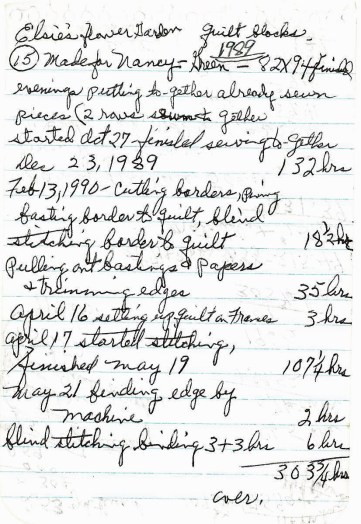 Elsie's Flower Garden Quilt blocks.
1989
(15) Made for Nancy - Green - 82X94 finished
evenings putting to-gether already sewn
pieces (2 rows sewn to gether
started Oct 27 - finished sewing to-gether
Dec 23, 1989 132 hrs
Feb 13, 1990 - Cutting borders, pining
basting border to quilt, blind
stitching border to quilt 18 1/2 hrs
Pulling out bastings & Papers
& trimming edges 35 hrs
April 16 setting up quilt on Frames 3 hrs
April 17 started stitching,
finished May 19 107 1/4 hrs
May 21 binding edge by
machine 2 hrs
blind stitching binding 3+3 hrs 6 hrs
303 3/4 hrs
over.